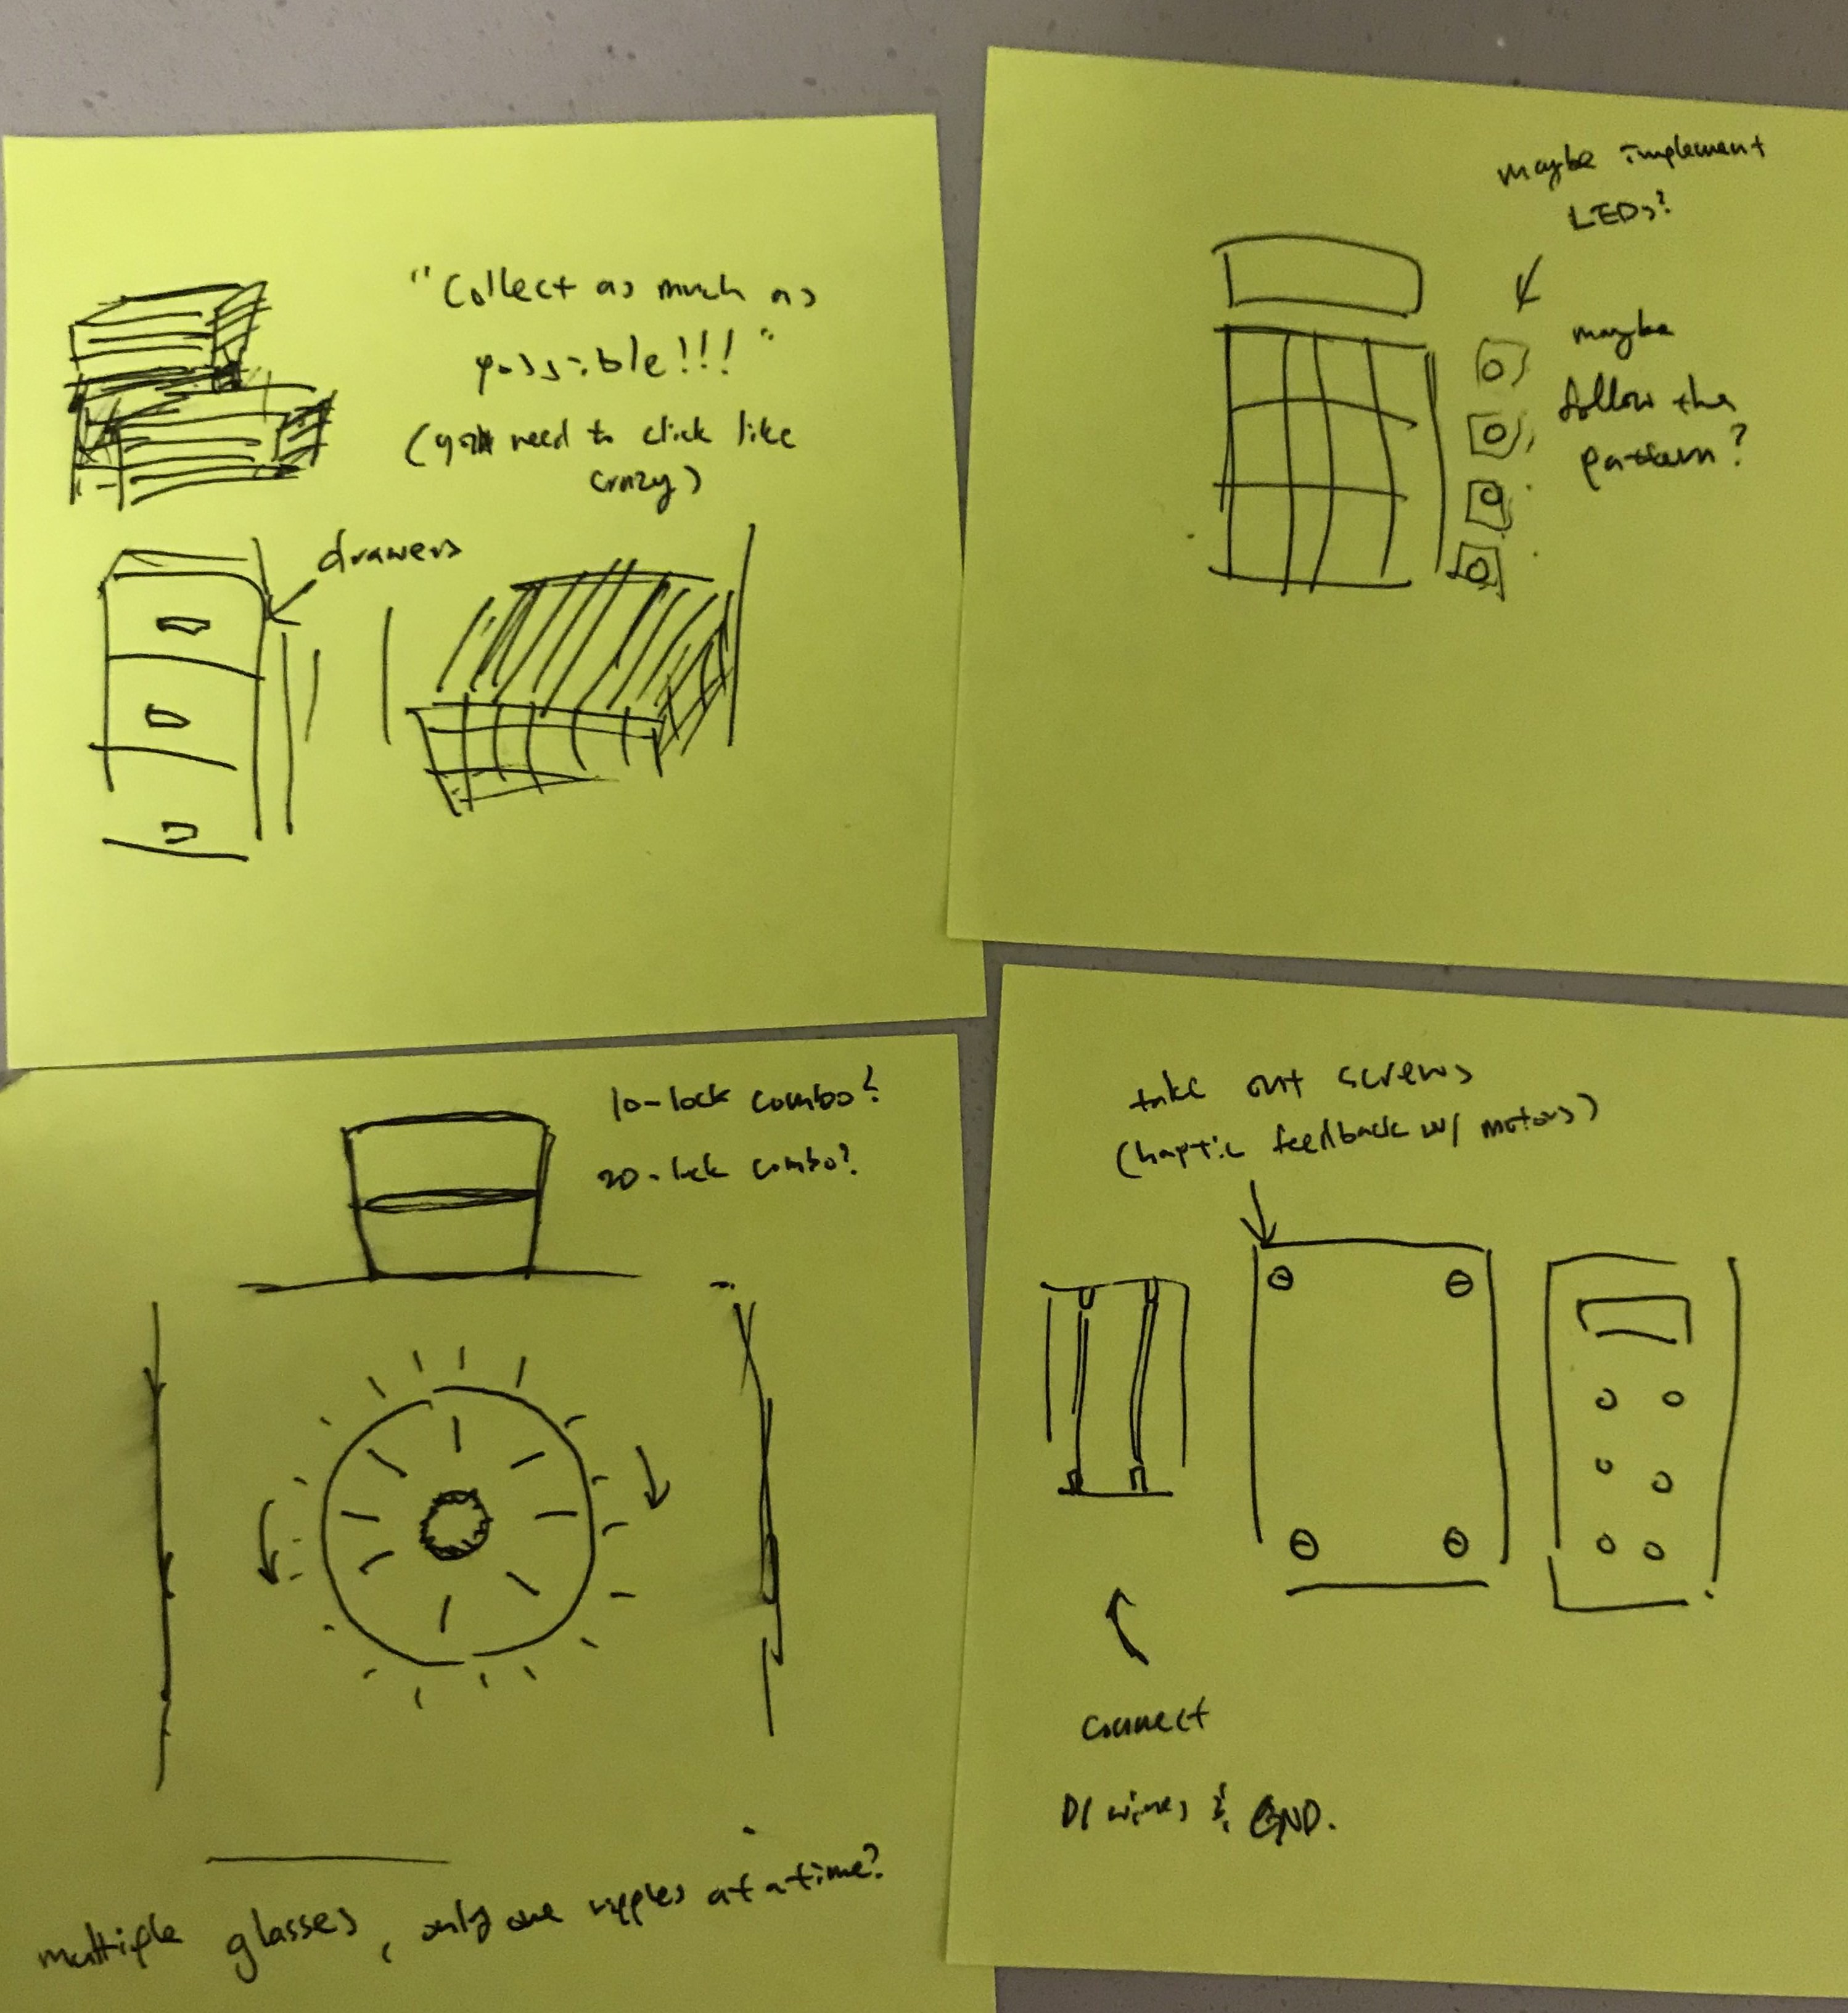 "Collect as much as
possible!!!"
(you need to click like
crazy)
drawers
maybe implement
LEDs?
maybe
follow the
pattern?
10-lock combo?
20-lock combo?
multiple glasses, only one ripples at a time?
take out screws
(haptic feedback w/ motors)
connect
wires & GND.